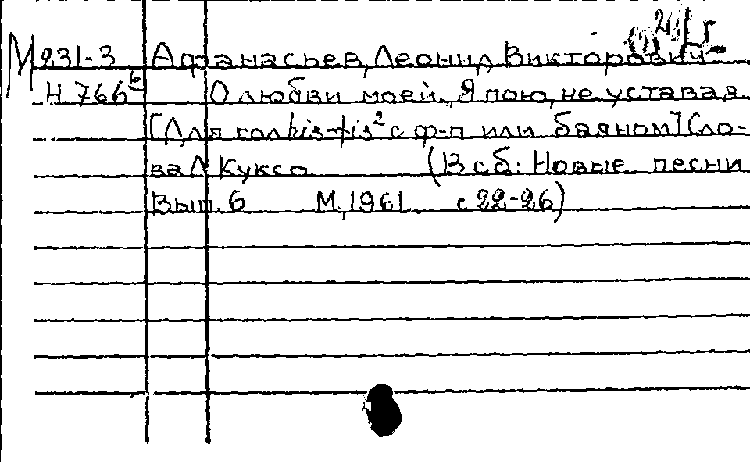 М 231-3 Афанасьев, Леонид Викторович
Н 766 О любви моей. Я пою, не уставая.
[Для гол his-fis² с ф-п или баяном] Сло-
ва Л Куксо (В сб: Новые песни
Вып. 6 М, 1961 с 22-26)